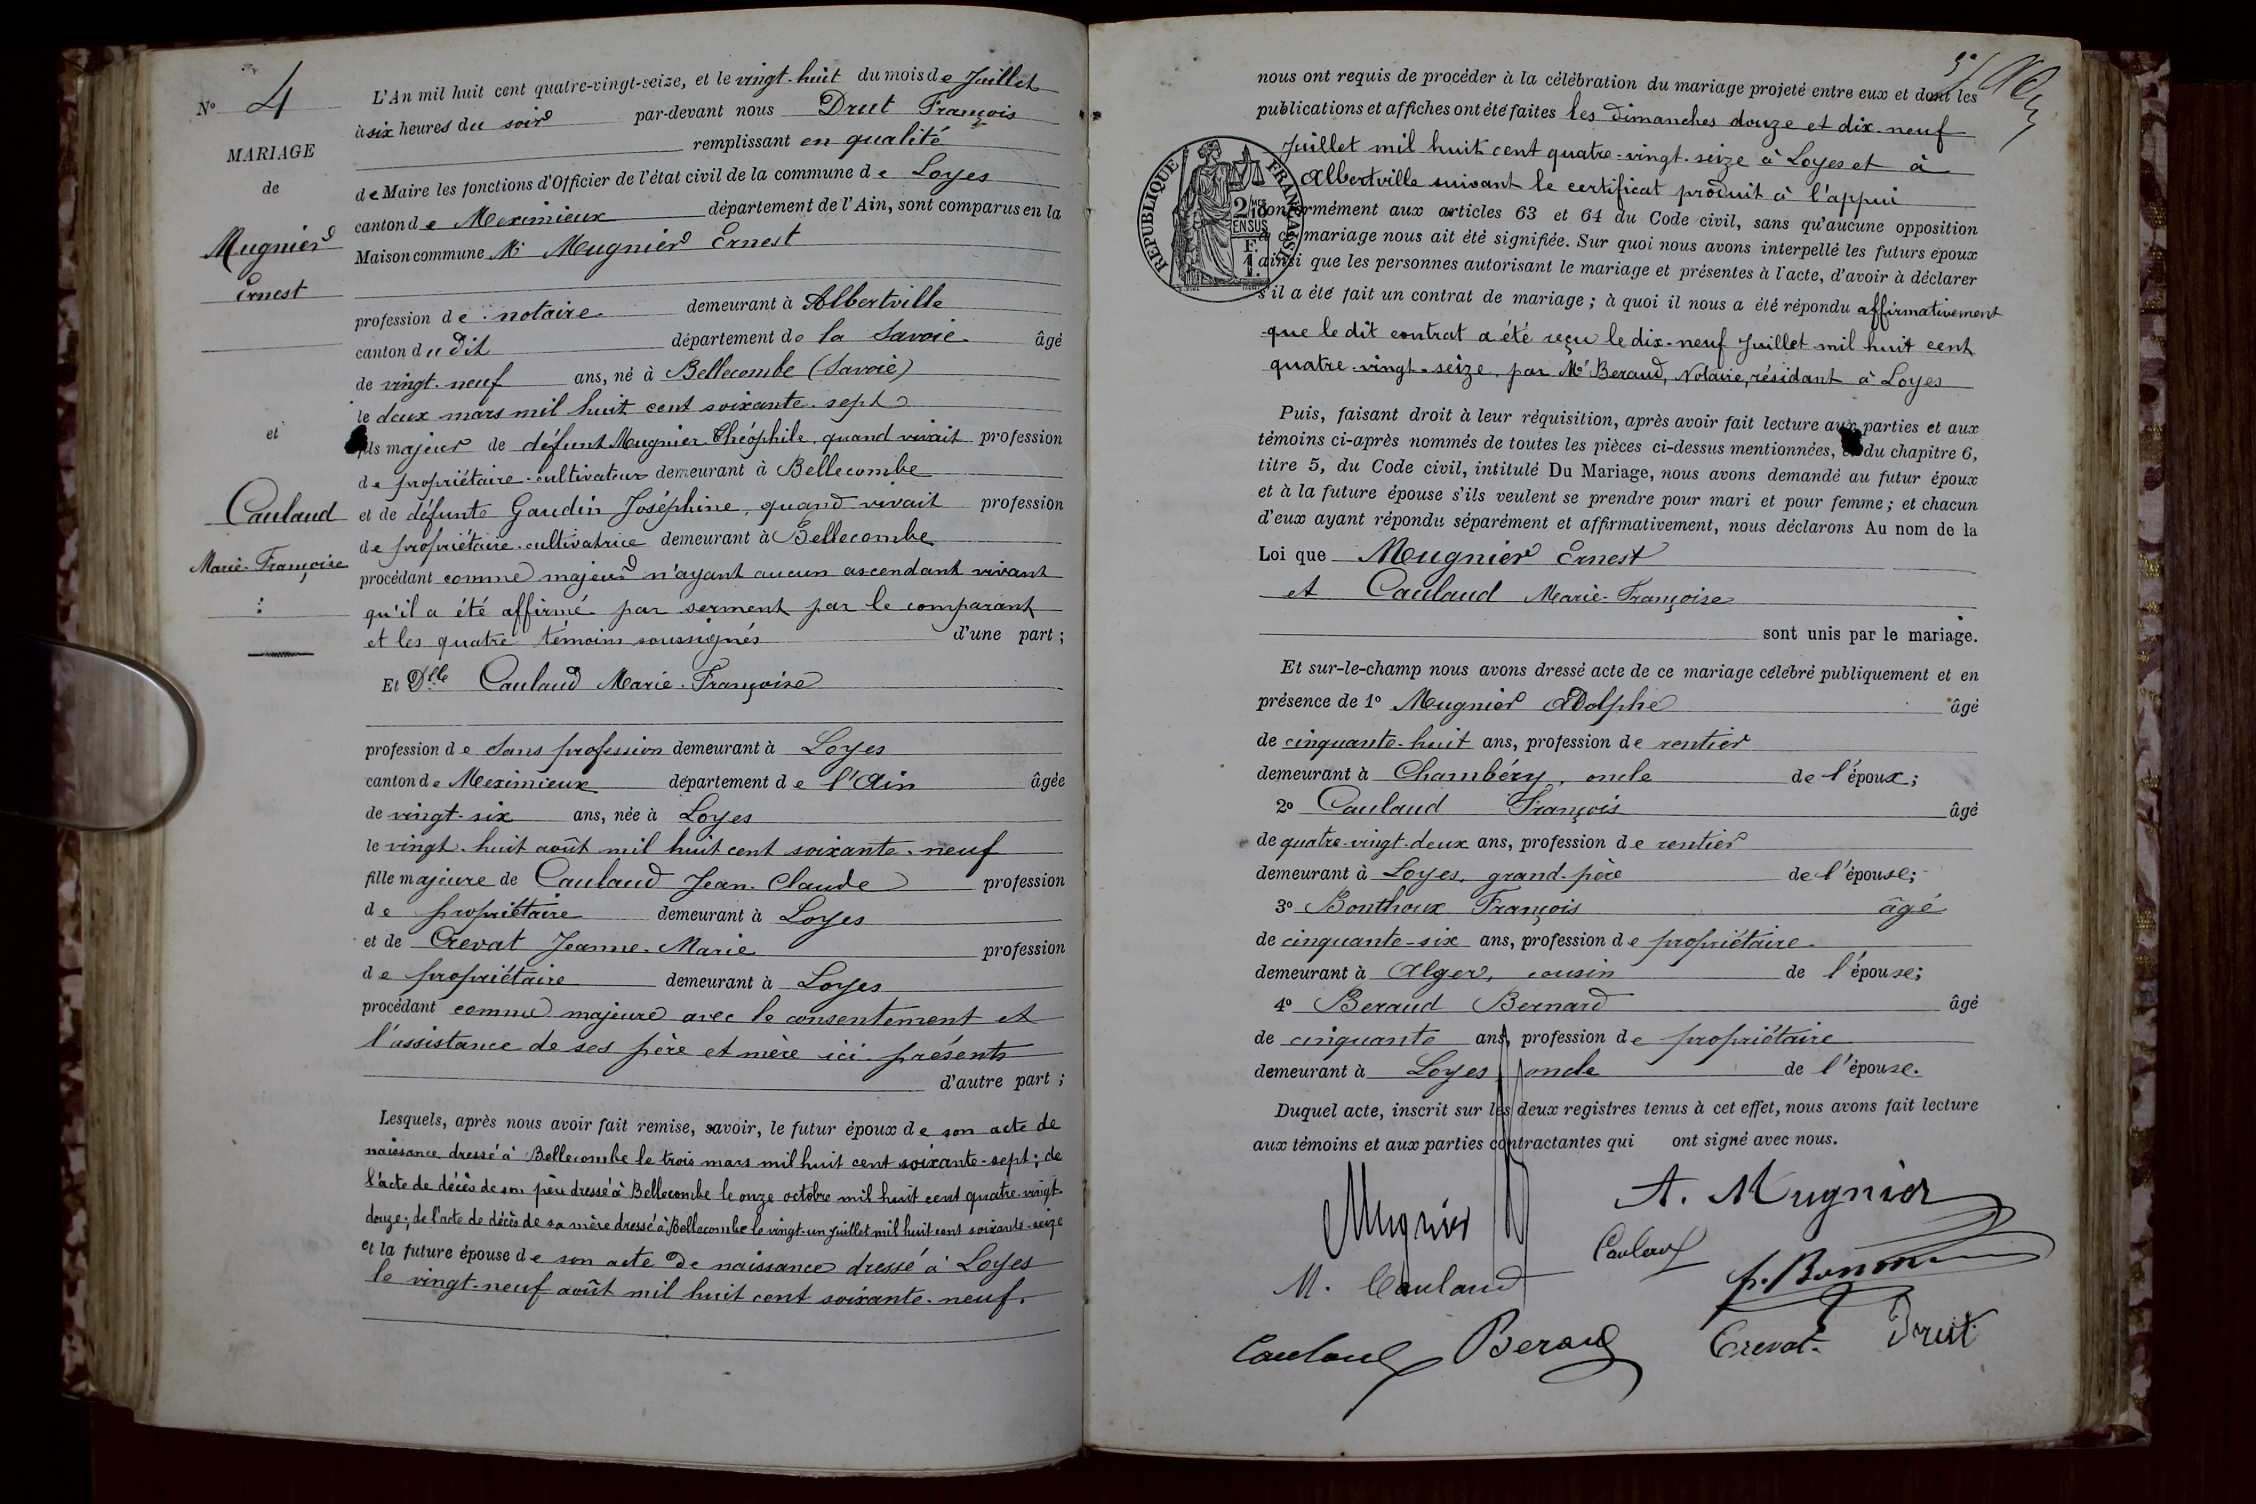 N° 4
MARIAGE
de
Mugnier
Ernest
et
Caulaud
Marie-Françoise
L'An mil huit cent quatre-vingt-seize, et le vingt-huit du mois de Juillet
à six heures du soir par-devant nous Drut François
remplissant en qualité
de Maire les fonctions d'Officier de l'état civil de la commune de Loyes
canton de Meximieux département de l'Ain, sont comparus en la
Maison commune Mr Mugnier Ernest
profession de notaire demeurant à Albertville
canton du dit département de la Savoie âgé
de vingt-neuf ans, né à Bellecombe (Savoie)
le deux mars mil huit cent soixante-sept
fils majeur de défunt Mugnier Théophile, quand vivait profession
de propriétaire-cultivateur demeurant à Bellecombe
et de défunte Gaudin Joséphine, quand vivait profession
de propriétaire-cultivatrice demeurant à Bellecombe
procédant comme majeur n'ayant aucun ascendant vivant
qu'il a été affirmé par serment par le comparant
et les quatre témoins soussignés d'une part ;
Et Dlle Caulaud Marie-Françoise
profession de sans profession demeurant à Loyes
canton de Meximieux département de l'Ain âgée
de vingt-six ans, née à Loyes
le vingt-huit août mil huit cent soixante-neuf
fille majeure de Caulaud Jean-Claude profession
de propriétaire demeurant à Loyes
et de Crevat Jeanne-Marie profession
de propriétaire demeurant à Loyes
procédant comme majeure avec le consentement et
l'assistance de ses père et mère ici présents
d'autre part ;
Lesquels, après nous avoir fait remise, savoir, le futur époux de son acte de
naissance dressé à Bellecombe le trois mars mil huit cent soixante-sept ; de
l'acte de décès de son père dressé à Bellecombe le onze octobre mil huit cent quatre-vingt-
douze ; de l'acte de décès de sa mère dressé à Bellecombe le vingt-un Juillet mil huit cent soixante-seize
et la future épouse de son acte de naissance dressé à Loyes
le vingt-neuf août mil huit cent soixante-neuf.
nous ont requis de procéder à la célébration du mariage projeté entre eux et dont les
publications et affiches ont été faites les Dimanches douze et dix-neuf
Juillet mil huit cent quatre-vingt-seize à Loyes et à
Albertville suivant le certificat produit à l'appui
RÉPUBLIQUE FRANÇAISE
2/10 EN SUS
F. 1.
conformément aux articles 63 et 64 du Code civil, sans qu'aucune opposition
à ce mariage nous ait été signifiée. Sur quoi nous avons interpellé les futurs époux
ainsi que les personnes autorisant le mariage et présentes à l'acte, d'avoir à déclarer
s'il a été fait un contrat de mariage ; à quoi il nous a été répondu affirmativement
que le dit contrat a été reçu le dix-neuf Juillet mil huit cent
quatre-vingt-seize, par Me Beraud, Notaire, résidant à Loyes
Puis, faisant droit à leur réquisition, après avoir fait lecture aux parties et aux
témoins ci-après nommés de toutes les pièces ci-dessus mentionnées, et du chapitre 6,
titre 5, du Code civil, intitulé Du Mariage, nous avons demandé au futur époux
et à la future épouse s'ils veulent se prendre pour mari et pour femme ; et chacun
d'eux ayant répondu séparément et affirmativement, nous déclarons Au nom de la
Loi que Mugnier Ernest
et Caulaud Marie-Françoise
sont unis par le mariage.
Et sur-le-champ nous avons dressé acte de ce mariage célébré publiquement et en
présence de 1° Mugnier Adolphe âgé
de cinquante-huit ans, profession de rentier
demeurant à Chambéry, oncle de l'époux ;
2° Caulaud François âgé
de quatre-vingt-deux ans, profession de rentier
demeurant à Loyes, grand-père de l'épouse ;
3° Bonthoux François âgé
de cinquante-six ans, profession de propriétaire
demeurant à Alger, cousin de l'épouse ;
4° Beraud Bernard âgé
de cinquante ans, profession de propriétaire
demeurant à Loyes, oncle de l'épouse.
Duquel acte, inscrit sur les deux registres tenus à cet effet, nous avons fait lecture
aux témoins et aux parties contractantes qui ont signé avec nous.
Mugnier A. Mugnier
M. Caulaud Caulaud
Caulaud Beraud Crevat Drut